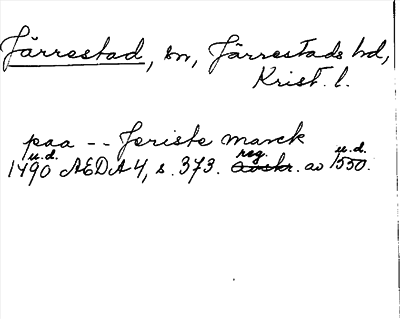 Järrestad, sn, Järrestads hd,
Krist. l.
paa -- Jeriste marck
u.d. reg. u.d.
1490 AEDA 4, s. 373. avskr. av 1550.